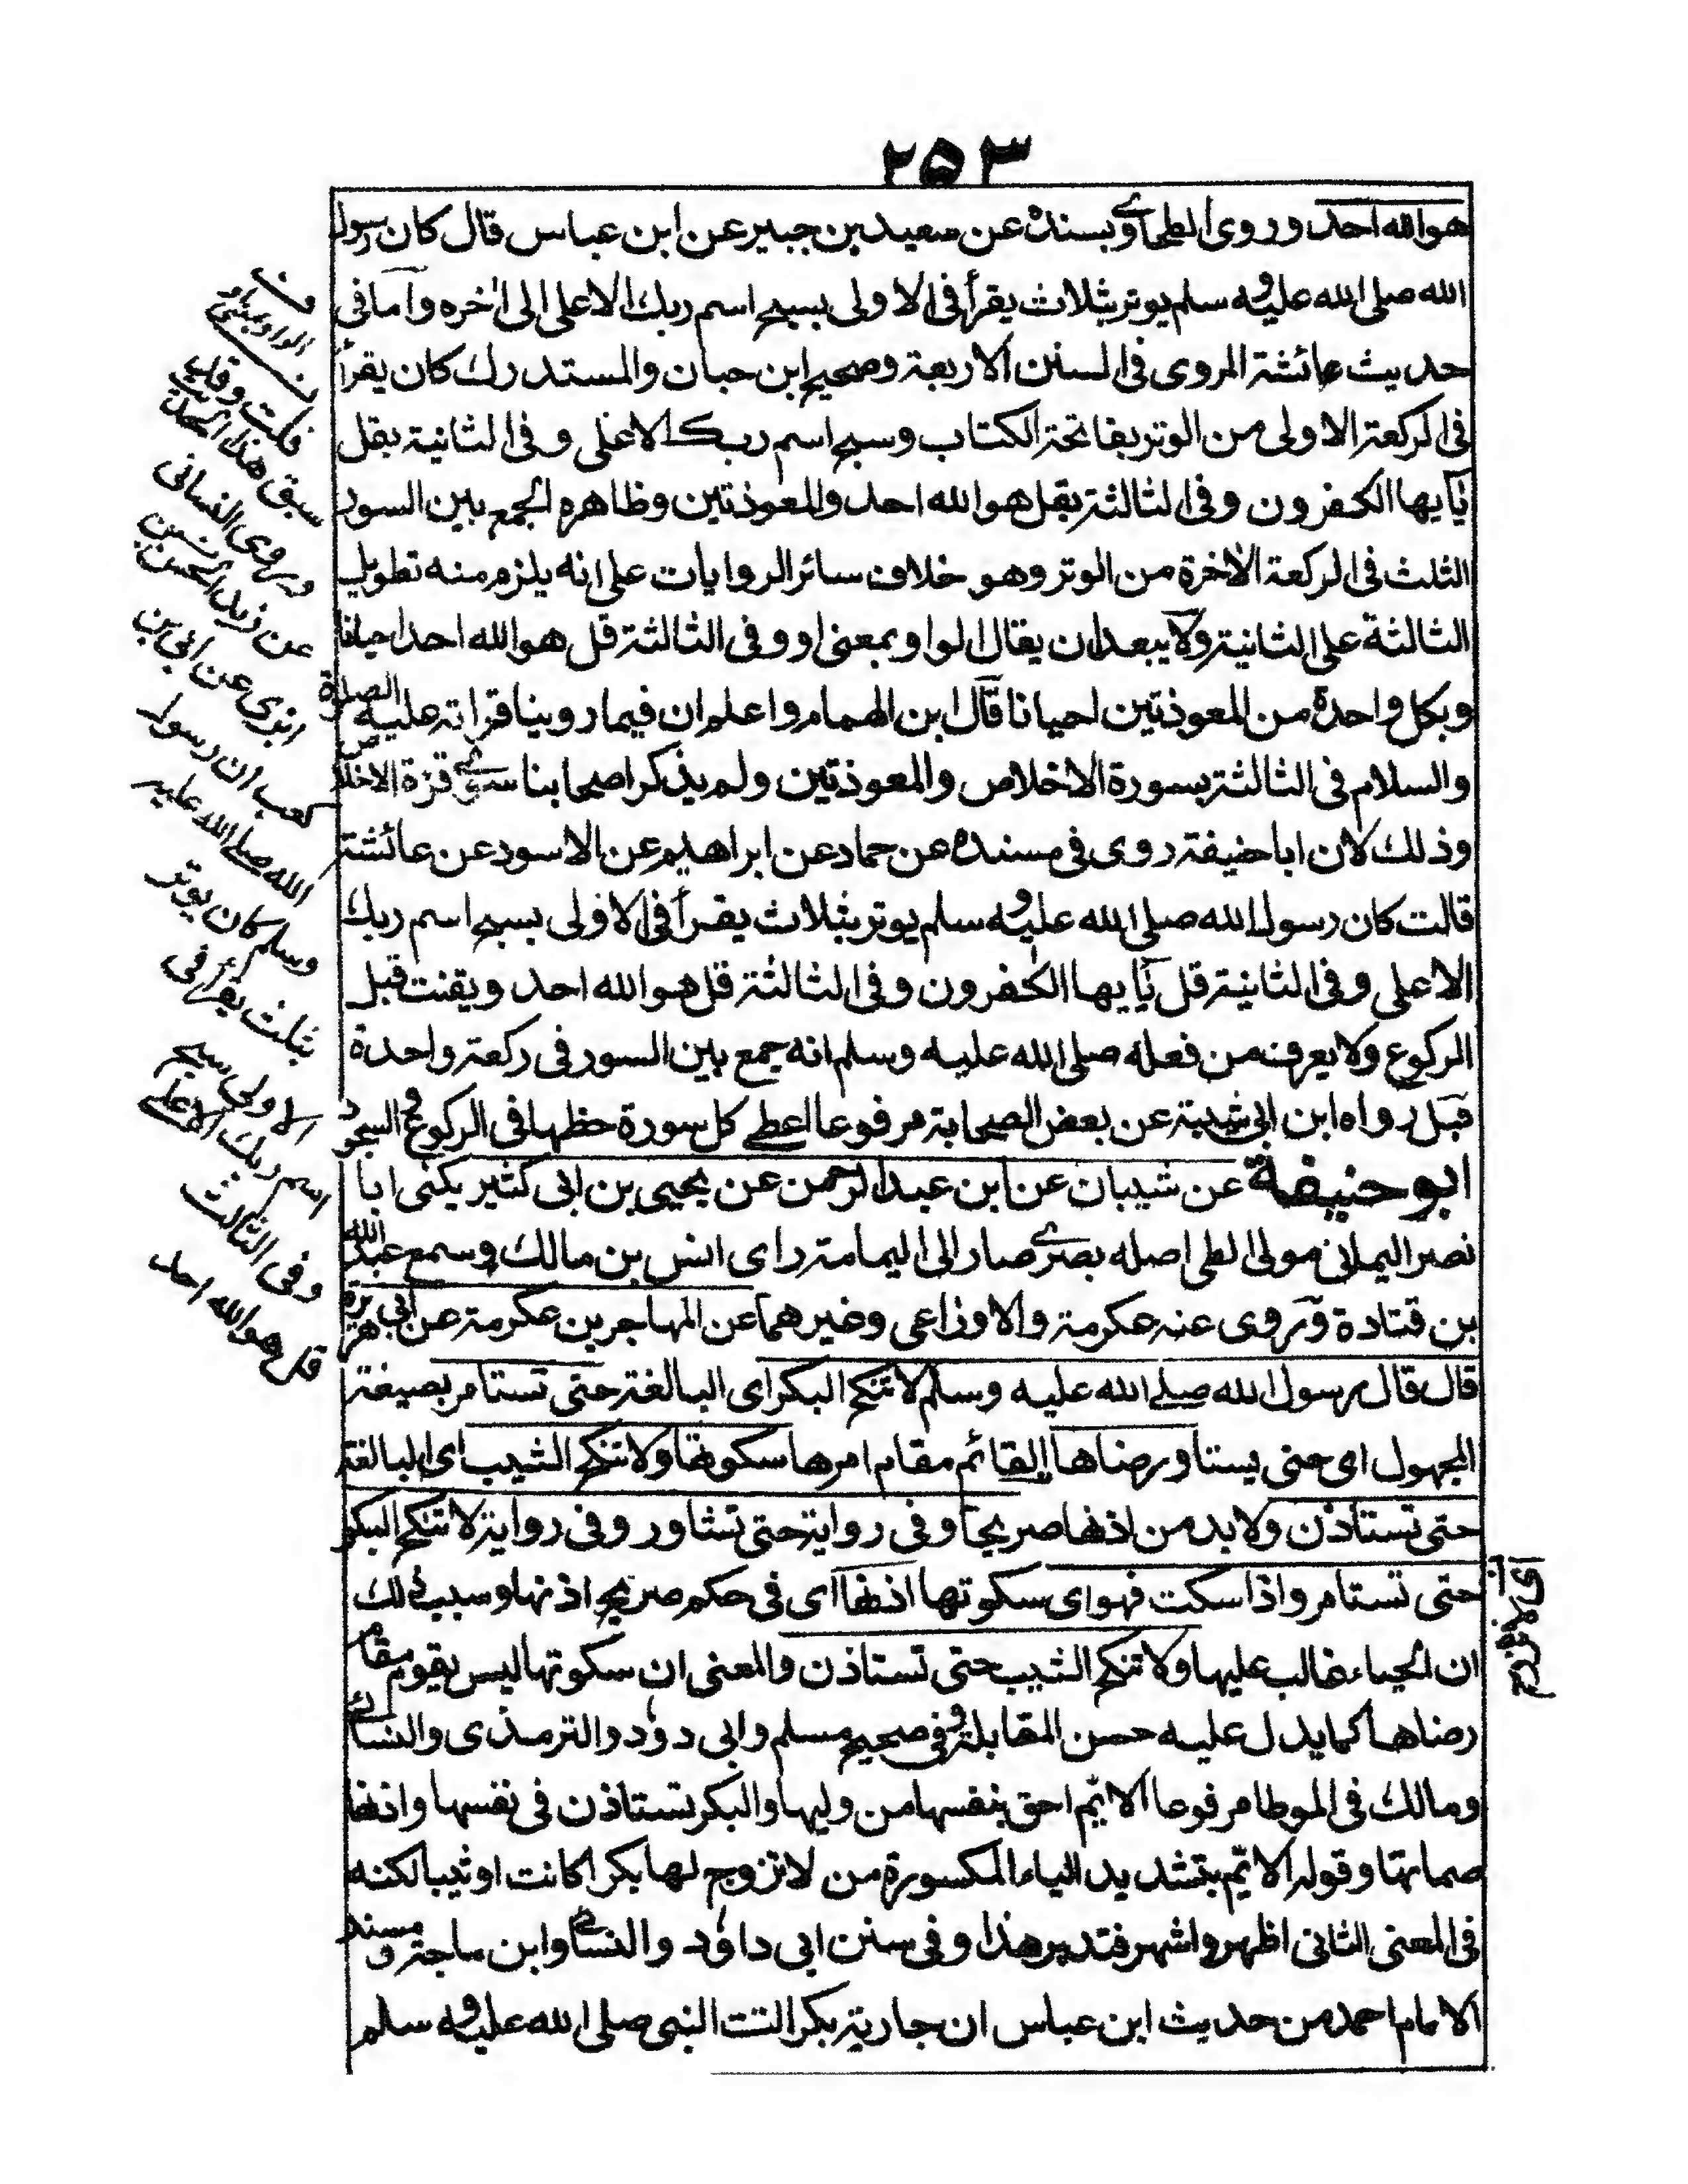 ٢٥٣
هو الله احد وروى الطحاوي بسنده عن سعيد بن جبير عن ابن عباس قال كان رسول
الله صلى الله عليه وسلم يوتر بثلاث يقرأ فى الاولى بسبح اسم ربك الاعلى الى اخره وآما فى
حديث عائشة المروى فى السنن الاربعة وصحيح ابن حبان والمستدرك كان يقرأ
فى الركعة الاولى من الوتر بفاتحة الكتاب وسبح اسم ربك الاعلى وفى الثانية بقل
يٰآيها الكٰفرون وفى الثالثة بقل هو الله احد والمعوذتين وظاهره الجمع بين السور
الثلث فى الركعة الاخرة من الوتر وهو خلاف سائر الروايات على انه يلزم منه تطويل
الثالثة على الثانية ولا يبعد ان يقال الواو بمعنى او وفى الثالثة قل هو الله احد احيانا
وبكل واحدة من المعوذتين احيانا قال ابن الهمام واعلم ان فيما روينا قراته عليه الصلوة
والسلام فى الثالثة بسورة الاخلاص والمعوذتين ولم يذكر اصحابنا سوى قرة الاخلاص
وذلك لان ابا حنيفة روى فى مسنده عن حماد عن ابراهيم عن الاسود عن عائشة
قالت كان رسول الله صلى الله عليه وسلم يوتر بثلاث يقرأ فى الاولى بسبح اسم ربك
الاعلى وفى الثانية قل يٰآيها الكٰفرون وفى الثالثة قل هو الله احد ويقنت قبل
الركوع ولا يعرف من فعله صلى الله عليه وسلم انه جمع بين السور فى ركعة واحدة
قبل رواه ابن ابى شيبة عن بعض الصحابة مرفوعا اعطے كل سورة حظها فى الركوع والسجود
ابو حنيفة عن شيبان عن ابن عبد الرحمن عن يحيى بن ابى كثير يكنى ابا
نصر اليمانى مولى الطى اصله بصرے صار الى اليمامة راى انس بن مالك وسمع عبد الله
بن قتادة وروى عنه عكرمة والاوزاعى وغيرهما عن المهاجر بن عكرمة عن ابى هريرة
قال قال رسول الله صلے الله عليه وسلم لا تنكح البكر اى البالغة حتى تستامر بصيغة
المجهول اى حتى يستاور رضاها القائم مقام امرها سكوتها ولا تنكح الثيب اى البالغة
حتى تستاذن ولا بد من اذنها صريحا وفى رواية حتى تشاور وفى رواية لا تنكح البكر
حتى تستامر واذا سكت فهو اى سكوتها اذنها اى فى حكم صريح اذنها وسبب ذلك
ان الحياء غالب عليها ولا تنكح الثيب حتى تستاذن والمعنى ان سكوتها ليس يقوم مقام
رضاها كما يدل عليه حسن المقابلة وفى صحيح مسلم وابى دوٗد والترمذى والنسائے
ومالك فى الموطا مرفوعا الايّم احق بنفسها من وليها والبكر تستاذن فى نفسها واذنها
صماتها وقوله الايّم بتشديد الياء المكسورة من لا تزوج لها بكرا كانت او ثيبا لكنه
فى المعنى الثانى اظهر واشهر فتدبر هذا وفى سنن ابى داوٗد والنسائے وابن ماجة ومسند
الامام احمد من حديث ابن عباس ان جارية بكرا اتت النبى صلى الله عليه وسلم
الواو بمعنى او
قلت وقد
سبق هذا الحديث
وروى النسائى
عن
ابزى عن ابى بن
كعب ان رسول
الله صلے الله عليه
وسلم كان يوتر
بثلث يقرأ فى
الاولى سبح
اسم ربك الاعلے
وفى الثالث
قل هو الله احد